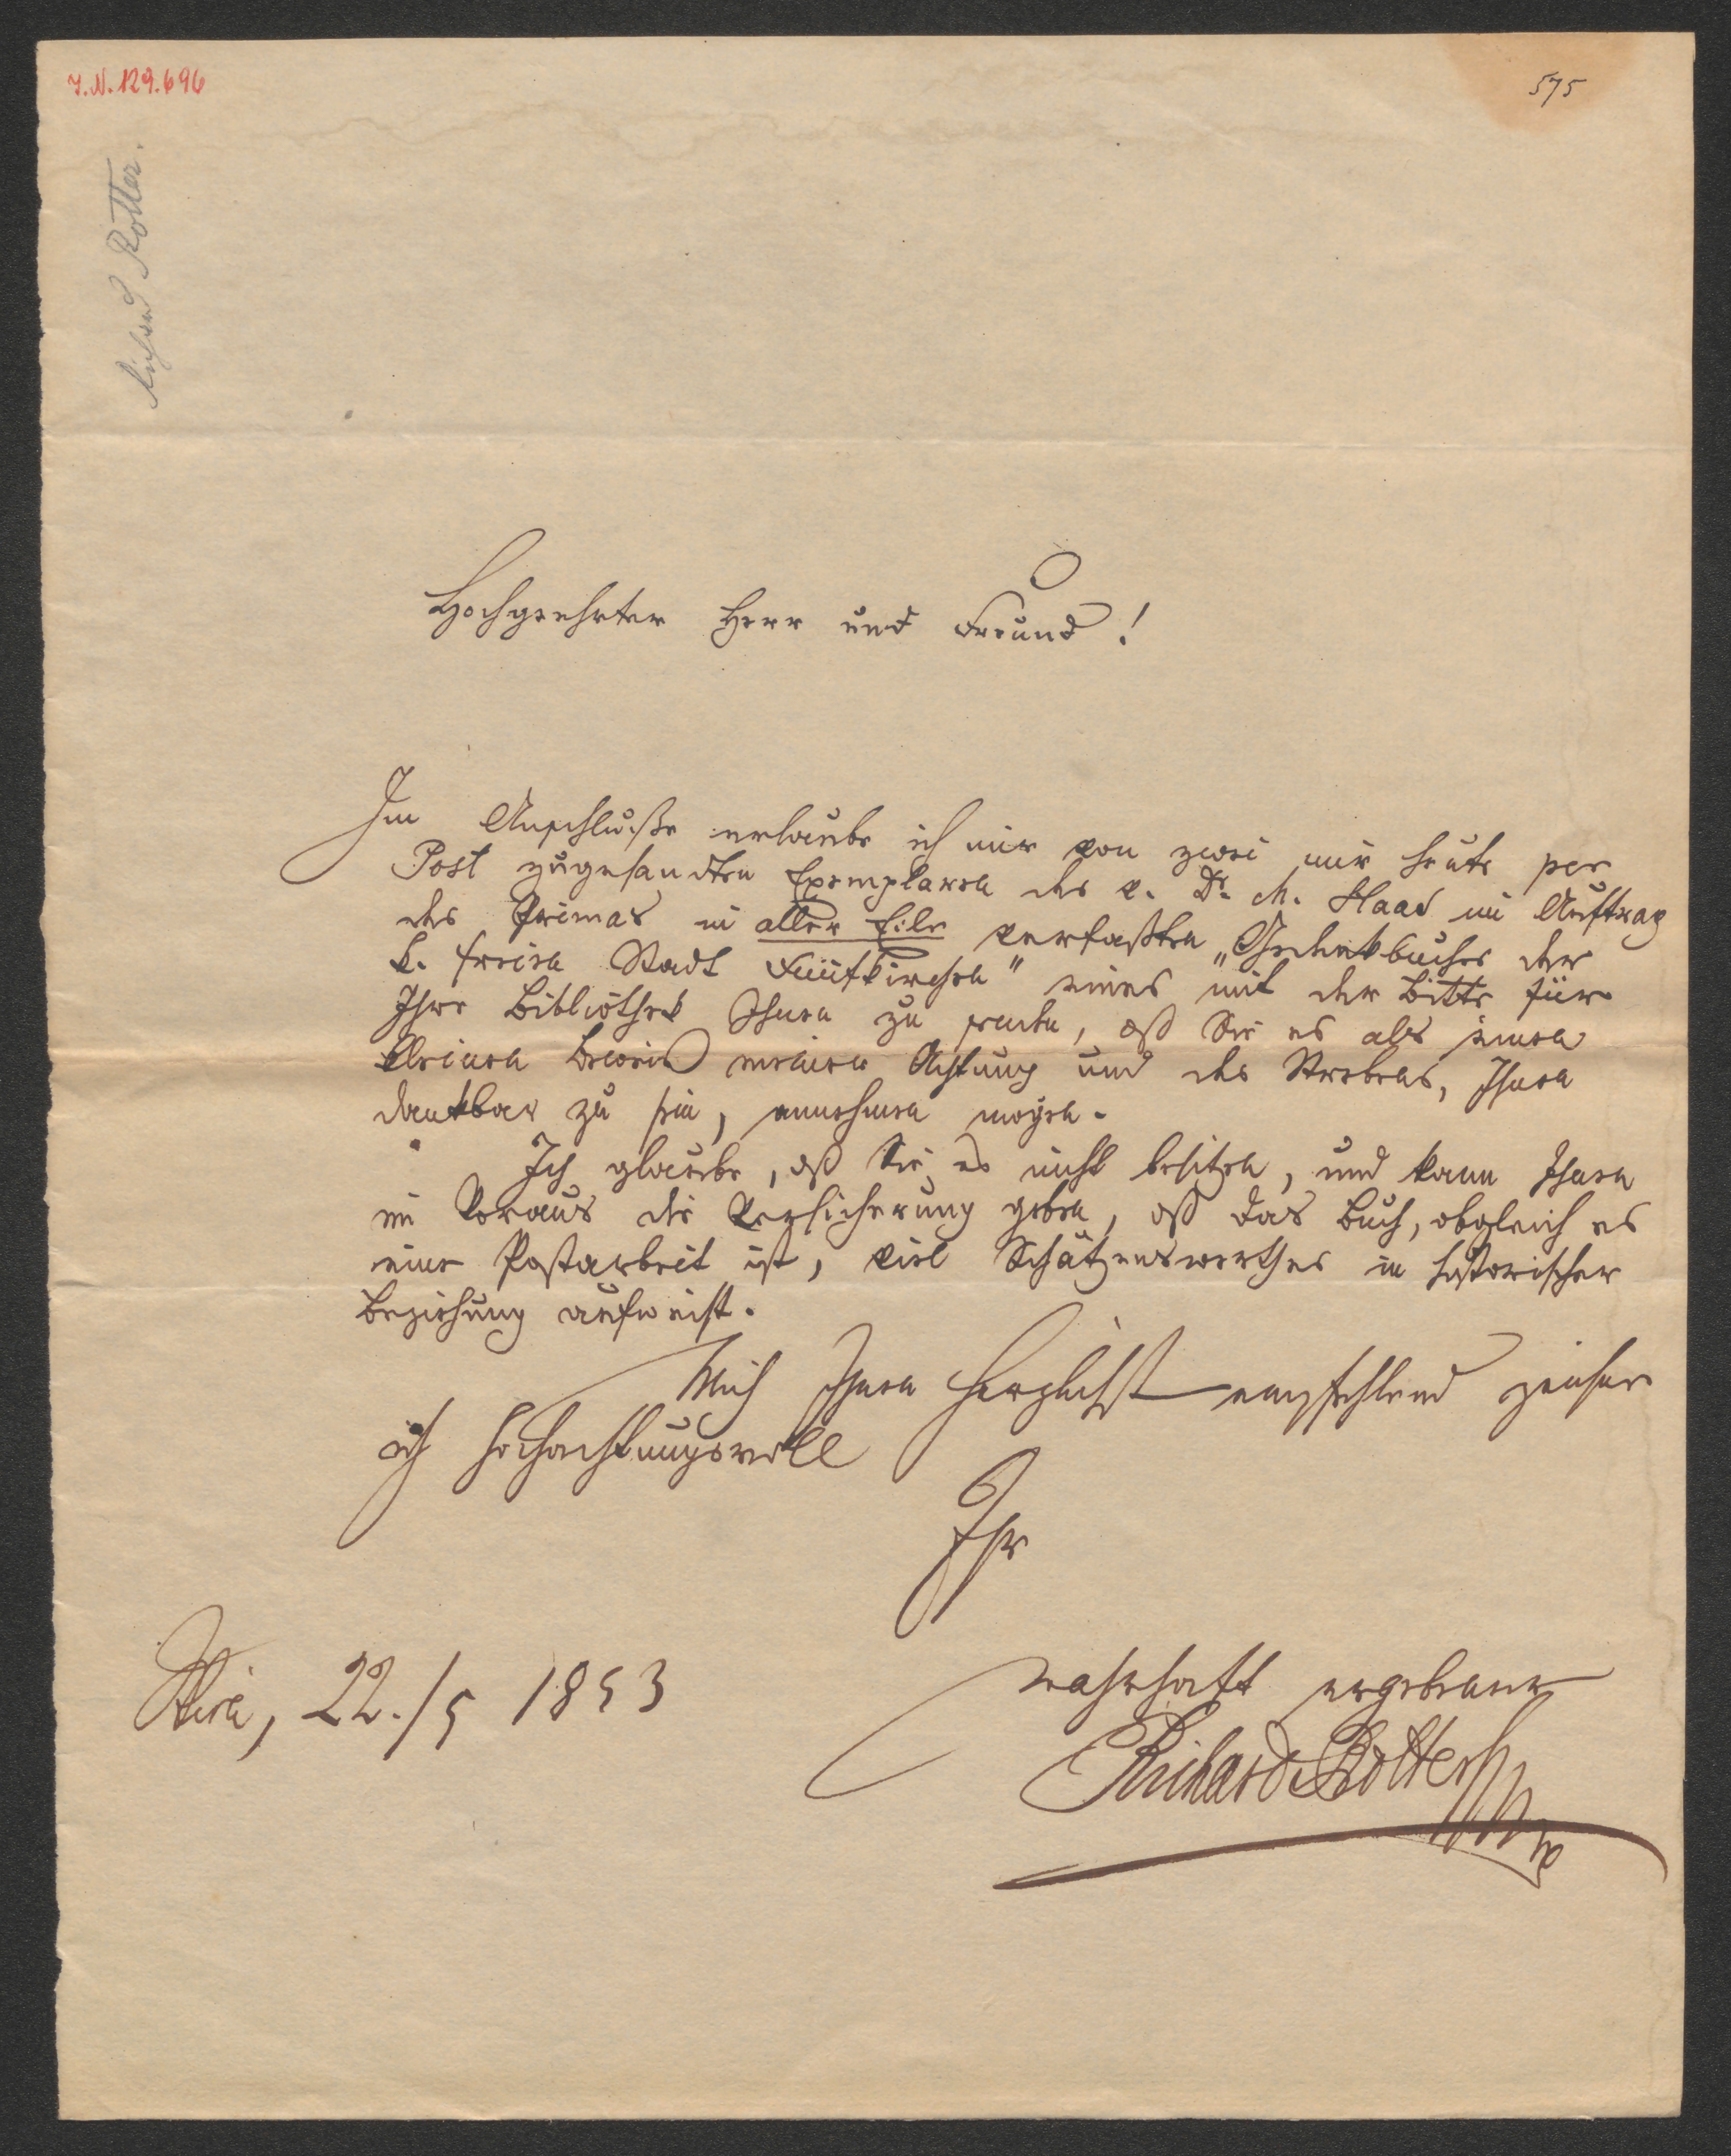 I.N. 129.696
575
Richard Rotter.
Hochgeehrter Herr und Freund!
Im Anschluße erlaube ich mir von zwei mir heute per
Post zugesandten Exemplaren des v. Dr. M. Haas im Auftrag
des Primas in aller Eile verfaßten „Gedenkbuches der
k. freien Stadt Fünfkirchen" eines mit der Bitte für
Ihre Bibliothek Ihnen zu senden, daß Sie es als einen
kleinen Beweis meiner Achtung und des Strebens, Ihnen
dankbar zu sein, annehmen mögen.
Ich glaube, daß Sie es nicht besitzen, und kann Ihnen
im Voraus die Versicherung geben, daß das Buch, obgleich es
eine Postarbeit ist, viel Schätzenswerthes in historischer
Beziehung aufweist.
Mich Ihnen herzlichst empfehlend zeichne
ich hochachtungsvoll
Ihr
wahrhaft ergebener
Richard Rotter
Wien, 22./5 1853